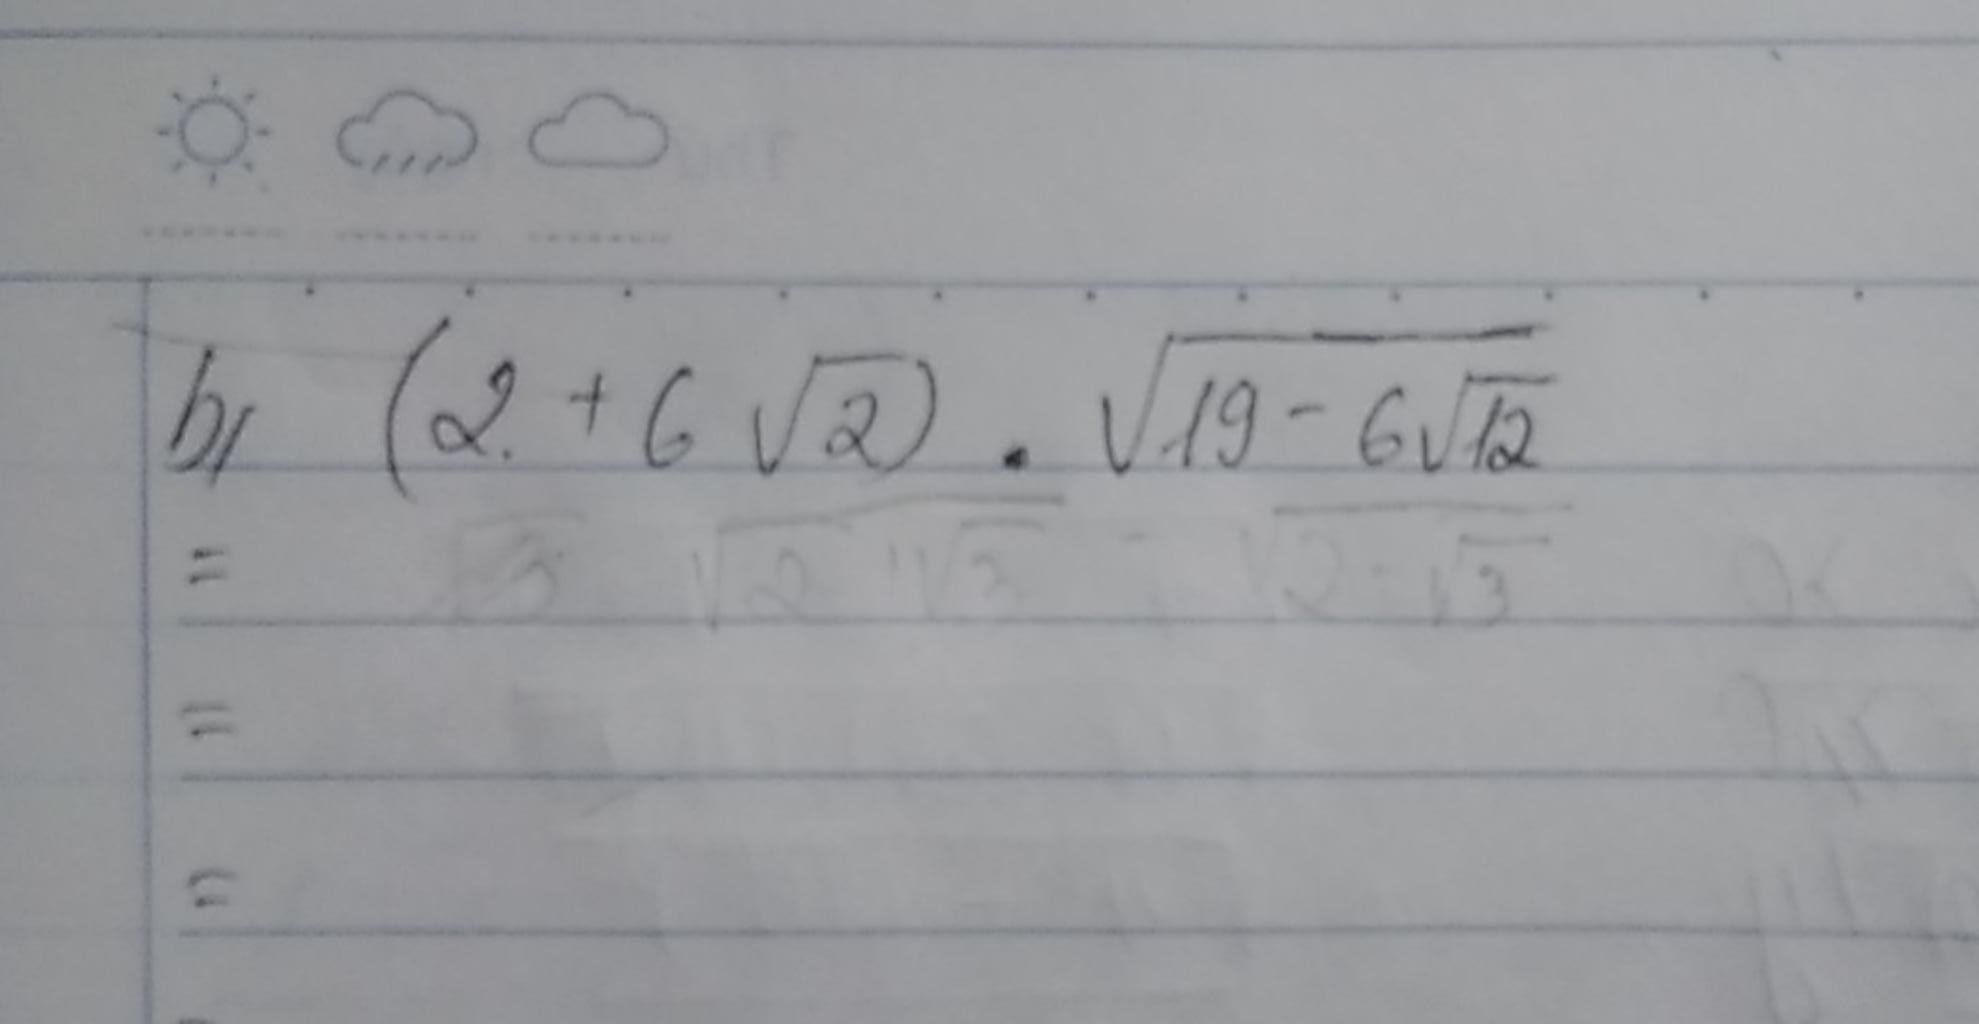 b, (2 + 6√2) . √(19 - 6√12)
=
=
=